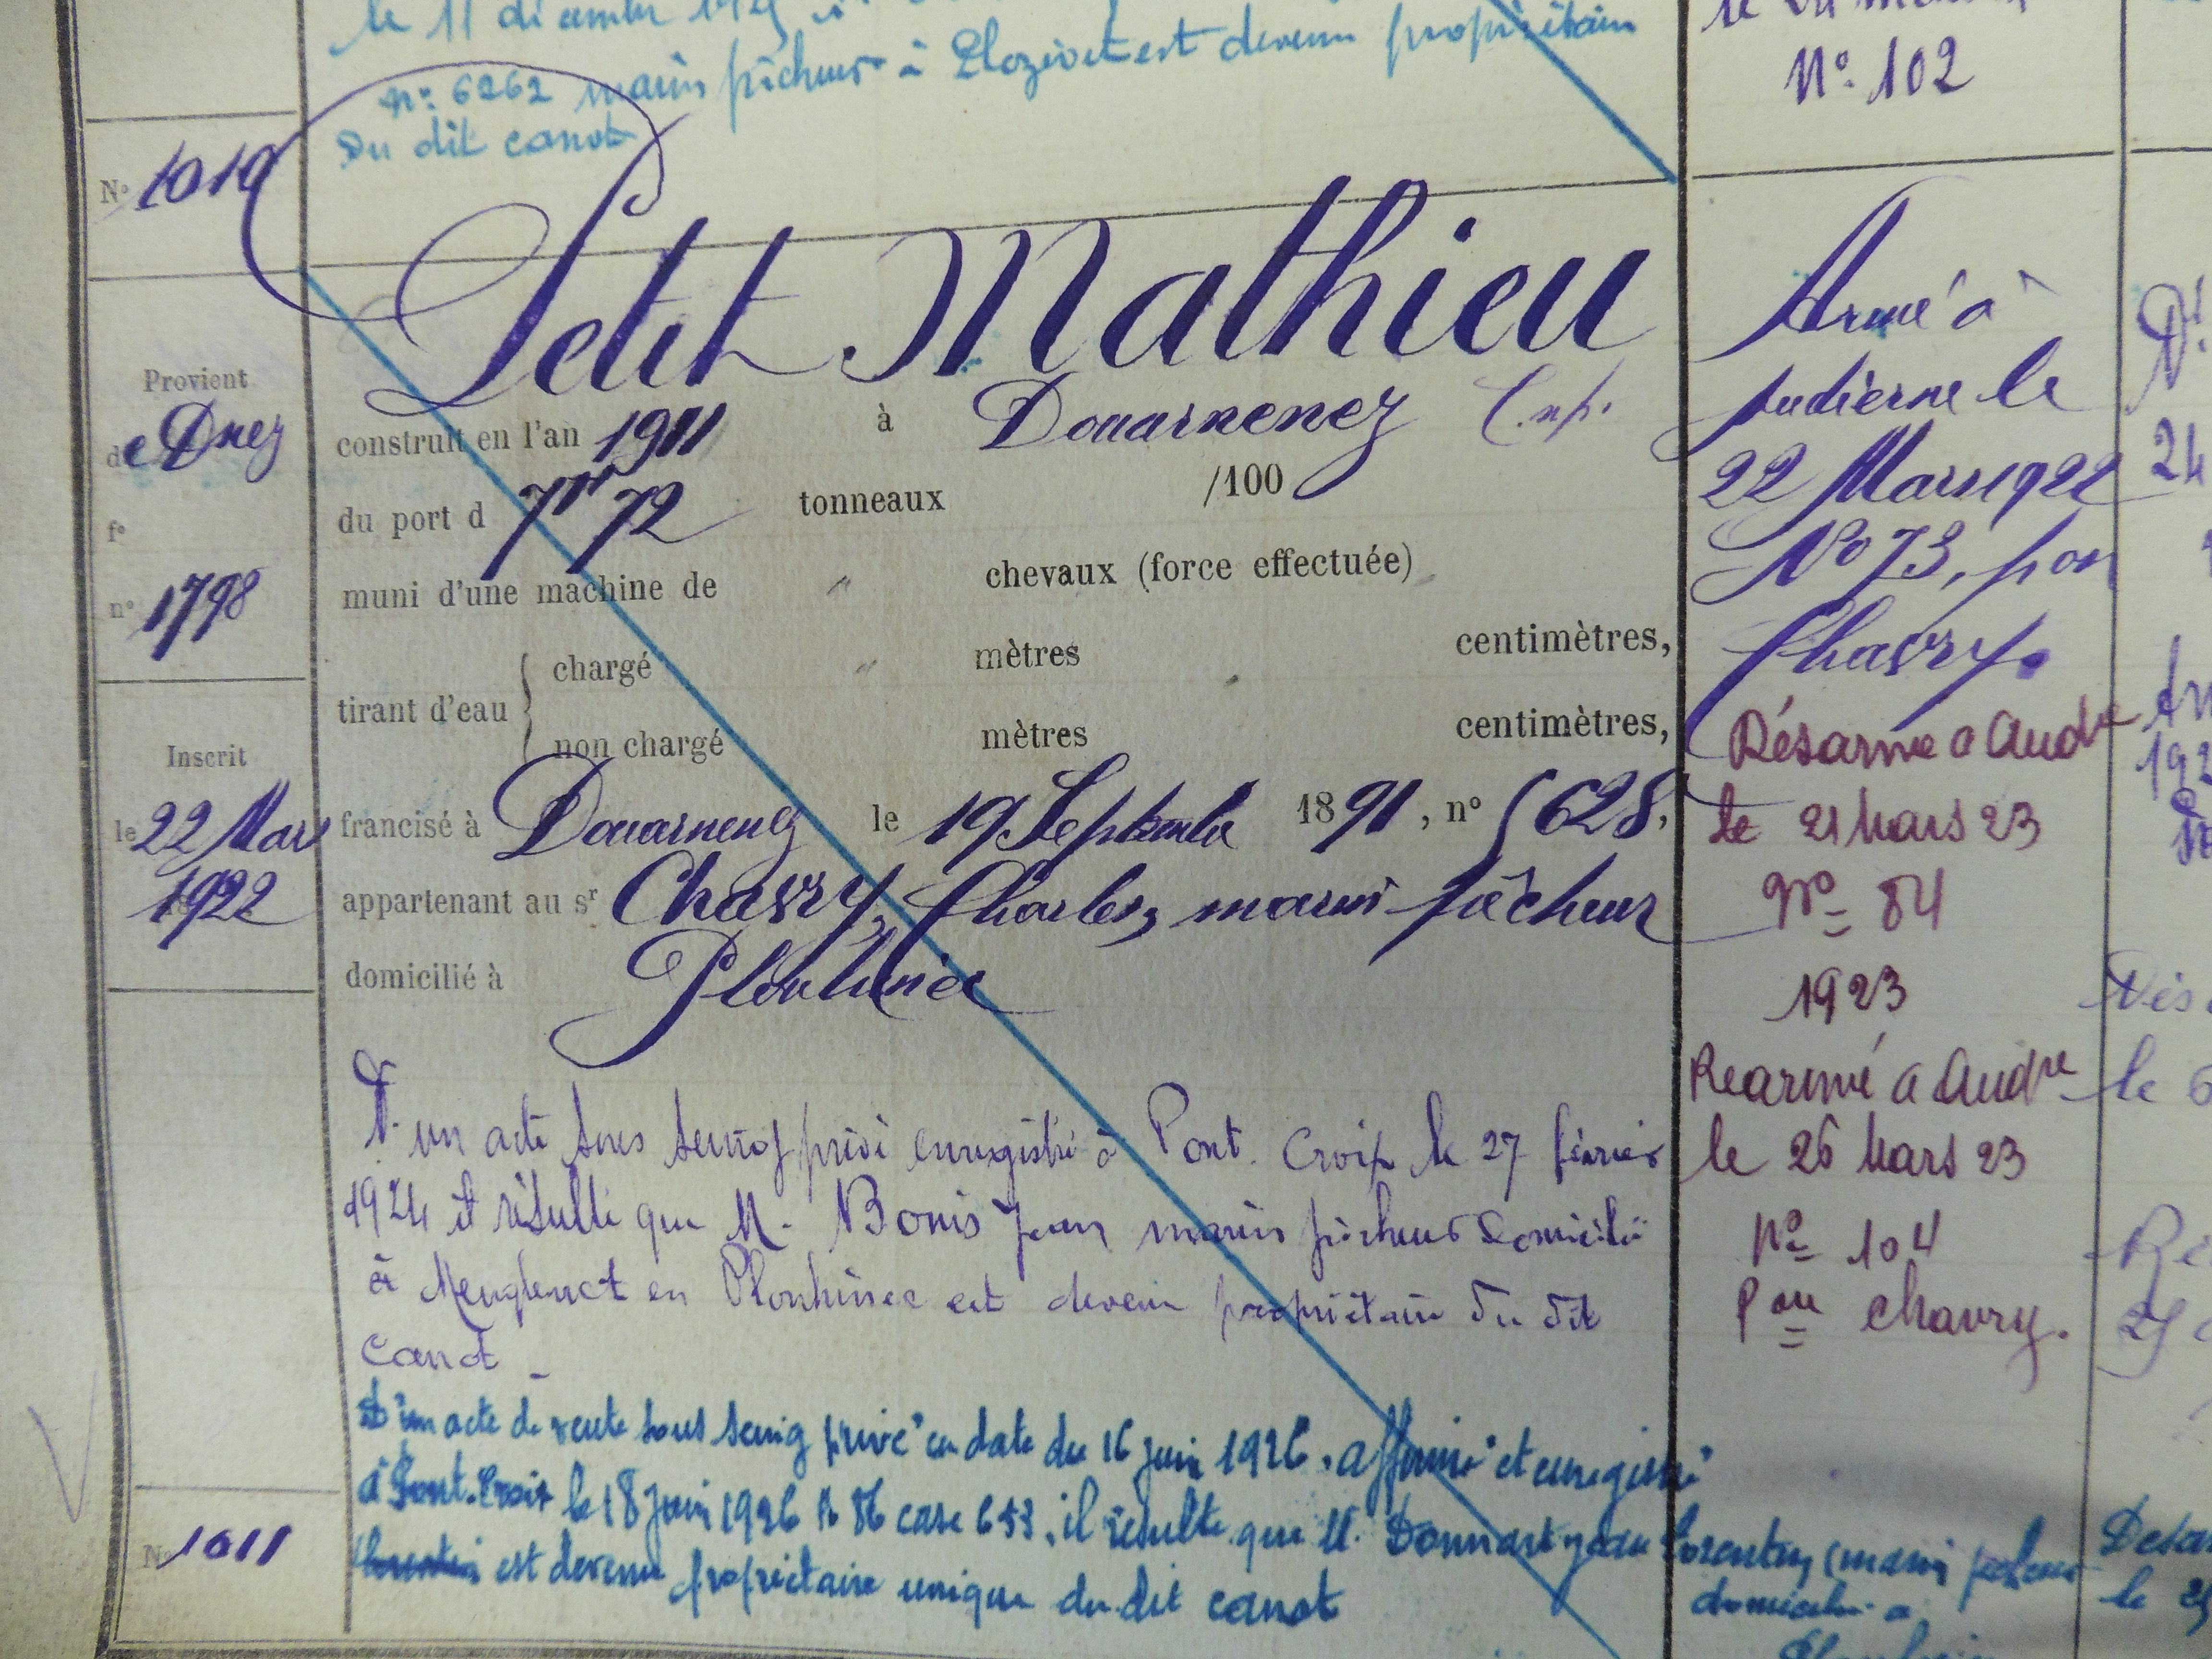 le 11 décembre
n° 6262 marin pêcheur à Plozévet est devenu propriétaire
Du dit canot
N° 102
N° 1010
Petit Mathieu
Provient
de Dnez
f°
n° 1798
construit en l'an 1911 à Douarnenez
du port d 7tx 72 tonneaux /100
muni d'une machine de " chevaux (force effectuée)
tirant d'eau
chargé " mètres " centimètres,
non chargé mètres centimètres,
Inscrit
le 22 Mars
1922
francisé à Douarnenez le 19 Septembre 1891, n° 5628,
appartenant au sr Chavry, Charles, marin pêcheur
domicilié à Plouhinec
D'un acte sous seing privé enregistré à Pont-Croix le 27 février
1924 il résulte que M. Bonis Jean marin pêcheur domicilié
à en Plouhinec est devenu propriétaire du dit
canot
D'un acte de vente sous seing privé en date du 16 juin 1926, affirmé et enregistré
à Pont-Croix le 18 juin 1926 case 653, il résulte que M. Donnart Jean Corentin (marin pêcheur
domicilié à
est devenu propriétaire unique du dit canot
N° 1011
Armé à
Audierne le
22 Mars 1922
N° 73, pon
Chavry.
Désarmé a Audne
le 21 Mars 23
N° 84
1923
Rearmé a Audne
le 26 Mars 23
N° 104
Pon Chavry.
24